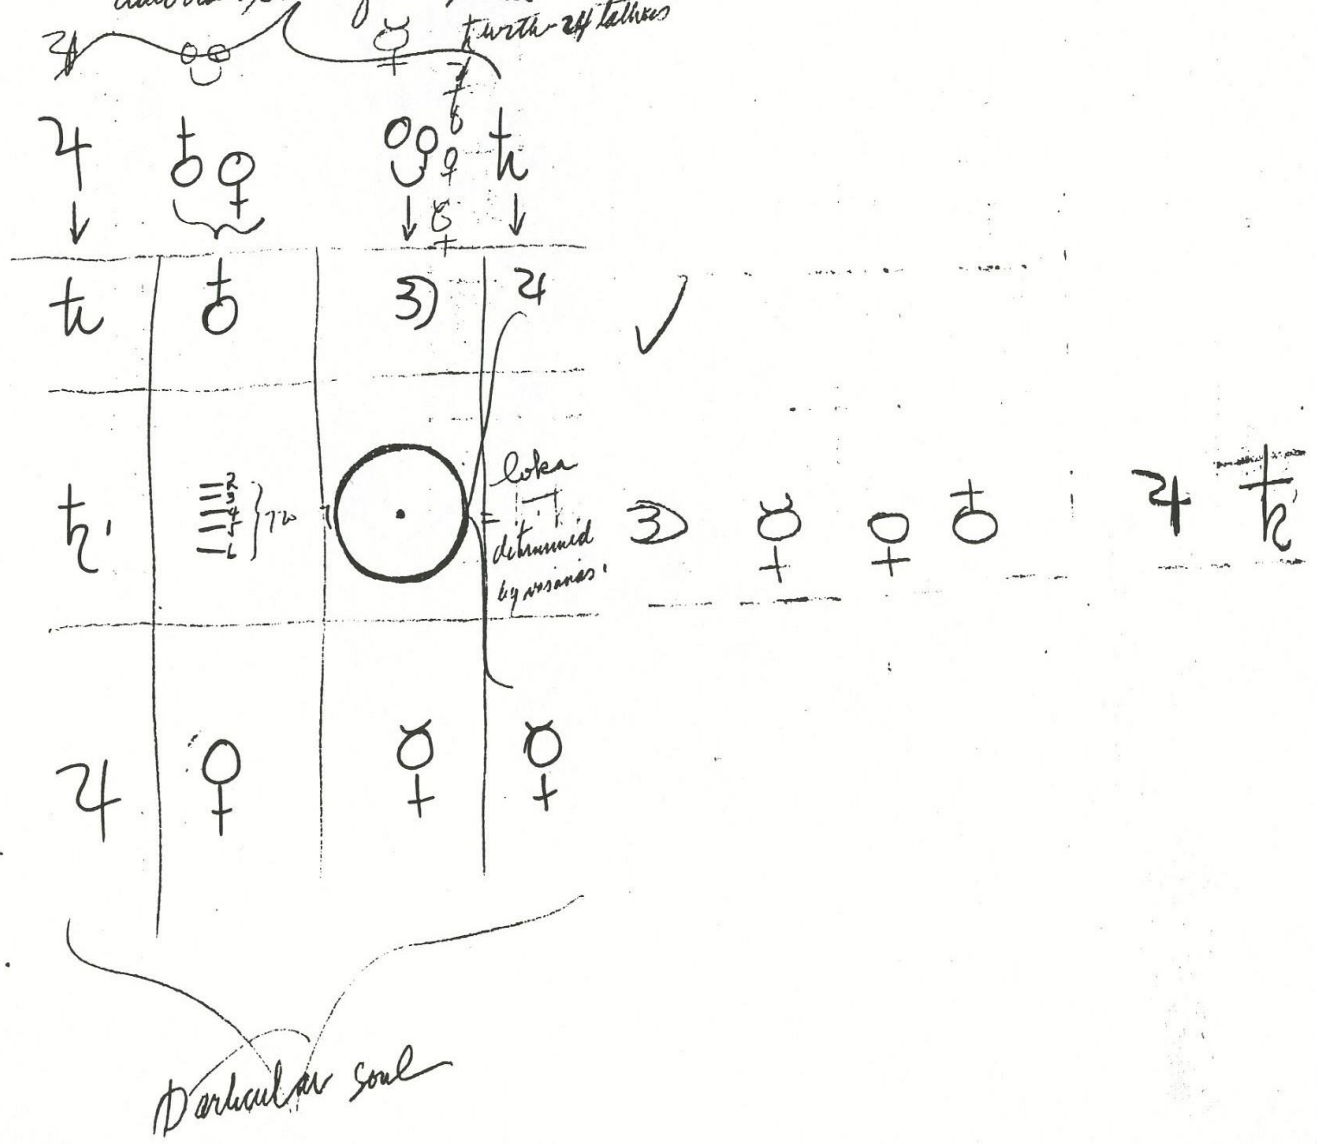 with 24 tattvas
♃ ☿
♃ ♁ ♀ ♄
↓ ↓ ↓
♄ ♁ 3) ♃ ✓
2
3
4
5
6
♄'
loka
determined
by vasanas.
3) ☿ ♀ ♁ ♃ ♄
♃ ♀ ☿ ☿
Particular soul